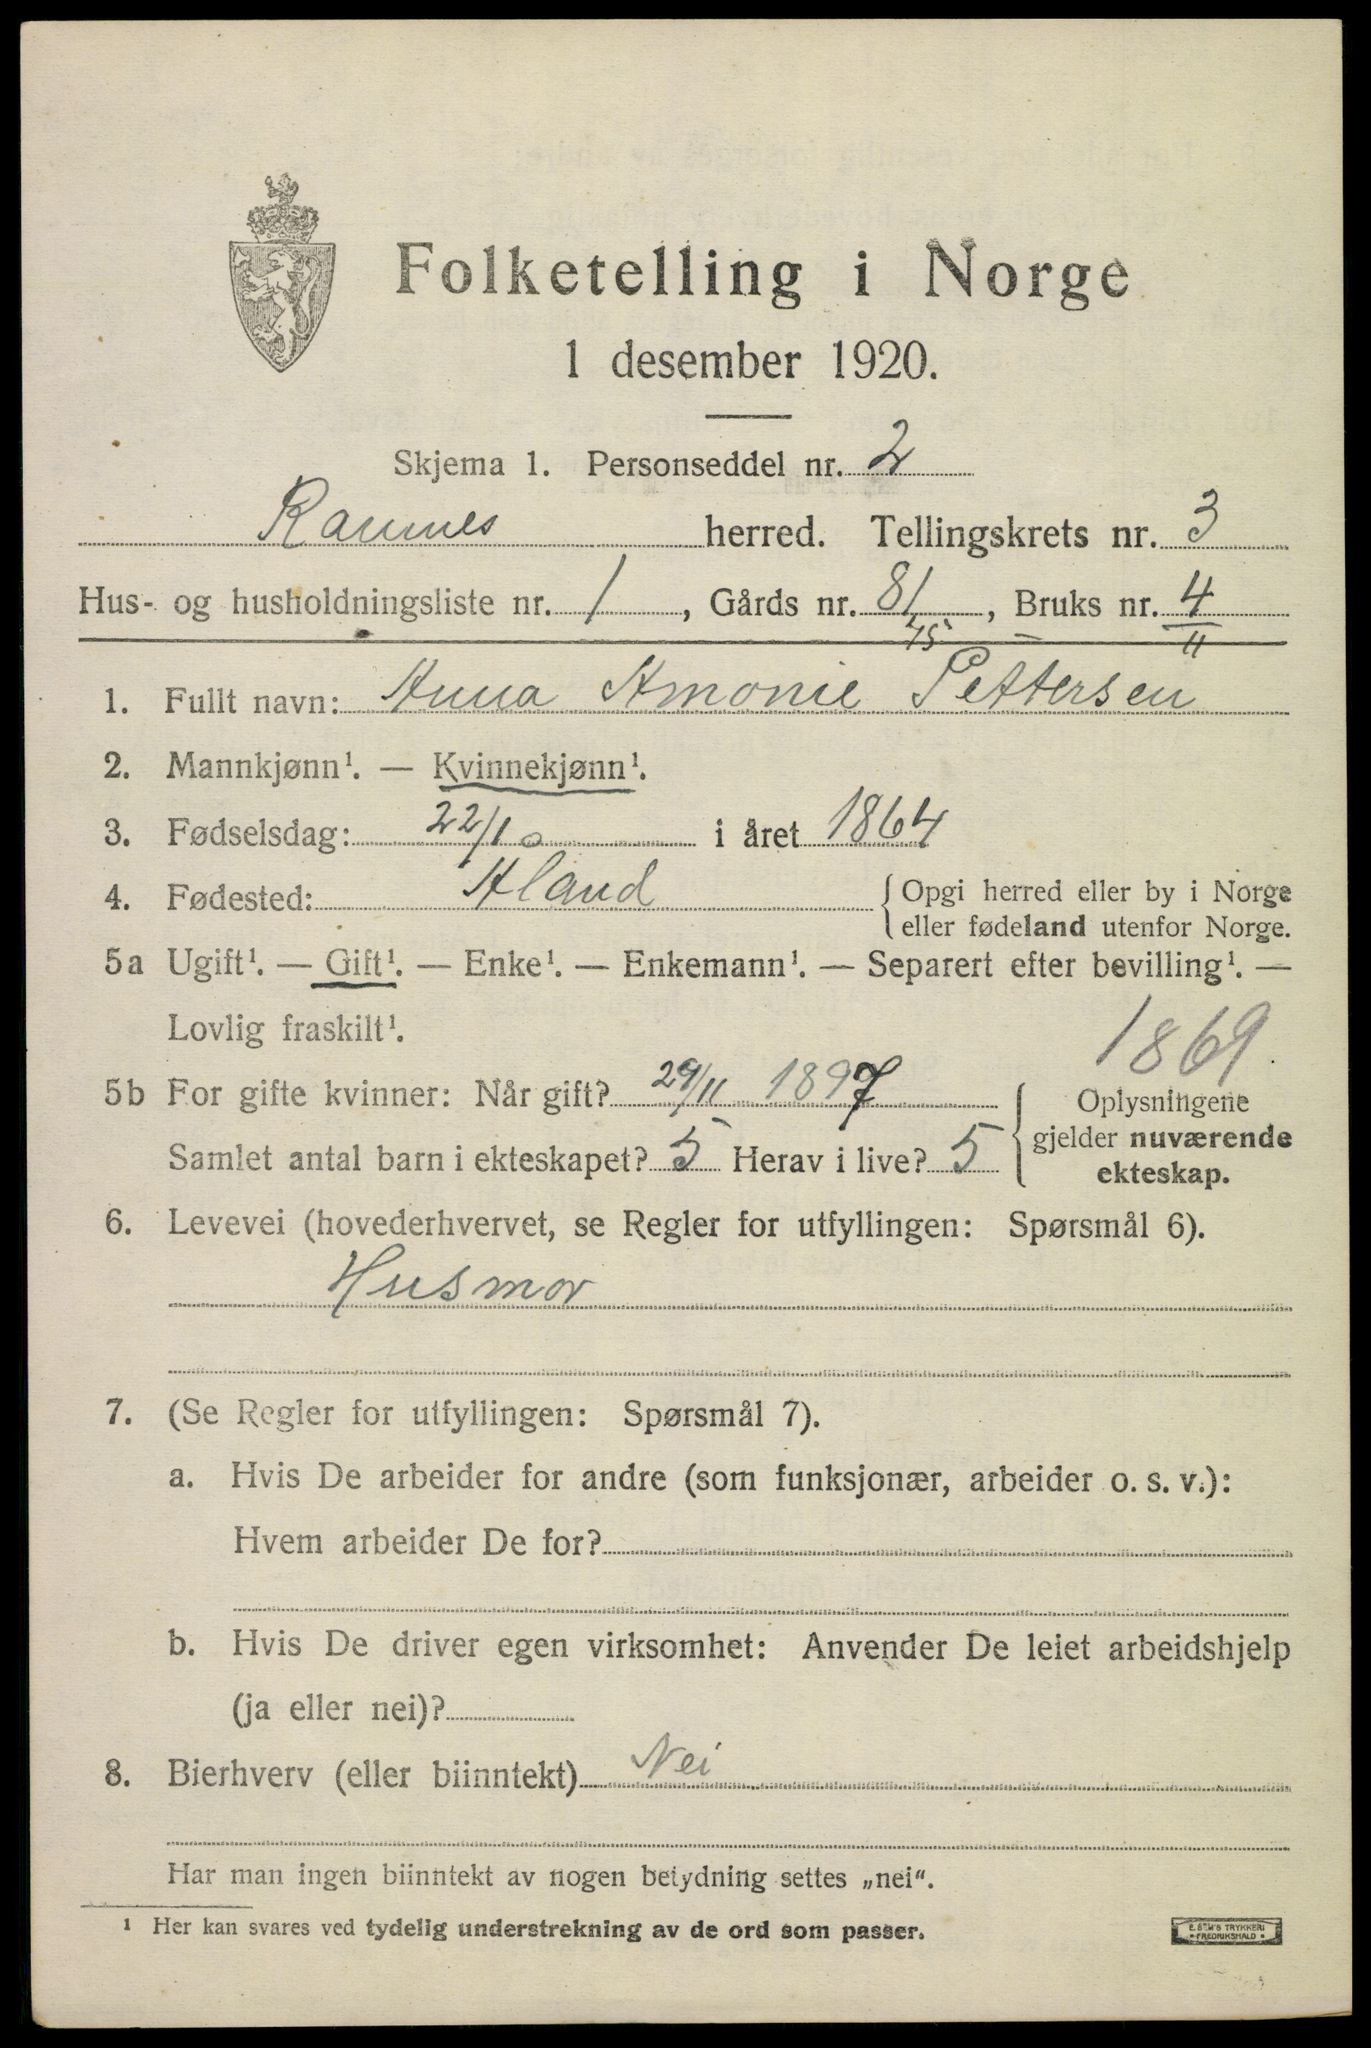 Folketelling i Norge
1 desember 1920.
Skjema 1. Personseddel nr. 2
Ramnes herred. Tellingskrets nr. 3
Hus- og husholdningsliste nr. 1, Gårds nr. 81, Bruks nr. 4
45 11
1. Fullt navn: Anna Amonie Pettersen
2. Mannkjønn¹. — Kvinnekjønn¹.
3. Fødselsdag: 22/10 i året 1864
4. Fødested: { Opgi herred eller by i Norge
eller fødeland utenfor Norge.
5a Ugift¹. — Gift¹. — Enke¹. — Enkemann¹. — Separert efter bevilling¹. —
Lovlig fraskilt¹.
1869
5b For gifte kvinner: Når gift? 29/11 1897 { Oplysningene
gjelder nuværende
ekteskap.
Samlet antal barn i ekteskapet? 5 Herav i live? 5
6. Levevei (hovederhvervet, se Regler for utfyllingen: Spørsmål 6).
Husmor
7. (Se Regler for utfyllingen: Spørsmål 7).
a. Hvis De arbeider for andre (som funksjonær, arbeider o. s. v.):
Hvem arbeider De for?
b. Hvis De driver egen virksomhet: Anvender De leiet arbeidshjelp
(ja eller nei)?
8. Bierhverv (eller biinntekt) Nei
Har man ingen biinntekt av nogen betydning settes „nei“.
¹ Her kan svares ved tydelig understrekning av de ord som passer.
E. SEM'S TRYKKERI
FREDRIKSHALD